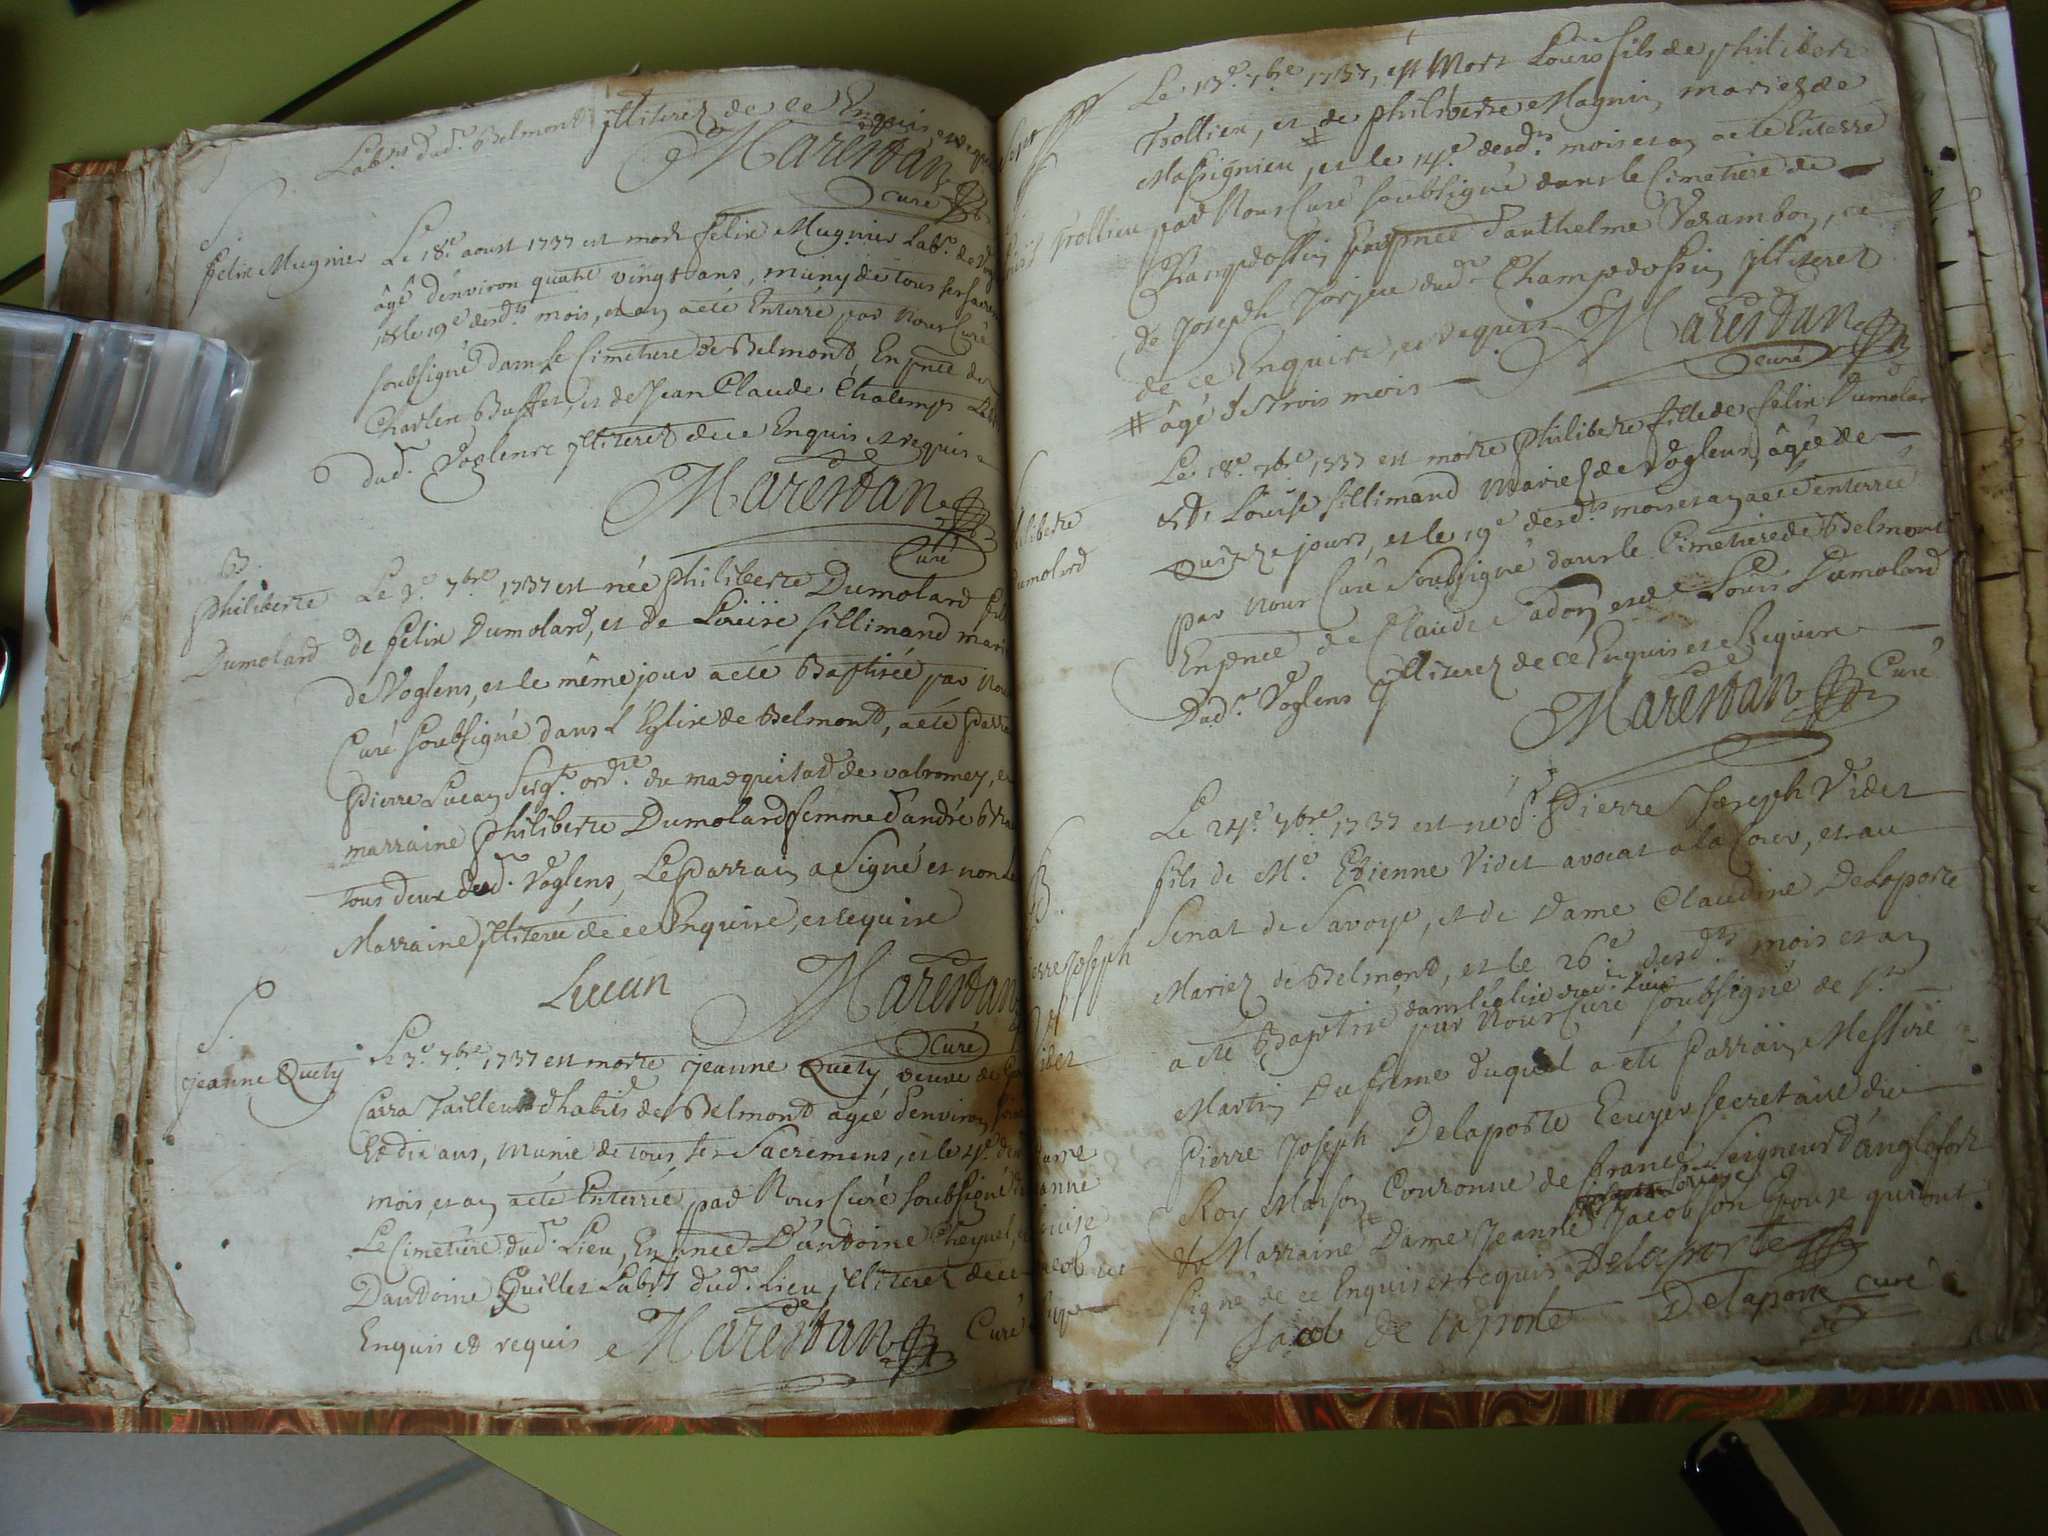 Lab.rs dud.t Belmont illiterez de ce Enquis et requis
Maresdan
curé
S.
felix Mugnier
Le 18.e aoust 1737 est mort felix Mugnier Lab.r de
âgé d'environ quatre vingt ans, muny de tous ses sacrem
et le 19.e desd.ts mois, et an a eté Enterré par Nous Curé
soubsigné dans le Cimetiere de Belmont, En pnce de
Charles Buffet, et de Jean Claude Chalemps Lab
dud.t Voglens illiterez de ce Enquis et requis
Maresdan
Curé
B.
philiberte
Dumolard
Le 3.e 7bre 1737 est née philiberte Dumolard fill
de felix Dumolard, et de Louise sillimand mari
de Voglens, et le même jour a eté Baptisée par Nou
Curé soubsigné dans l'Eglise de Belmont, a eté parra
pierre Lucan Serg.t ord.re du marquisat de valromey, et
marraine philiberte Dumolard femme d'andré
tous deux dud.t Voglens, Le parrain a signé et non la
Marraine illiterée de ce Enquise, et requise
Lucan
Maresdan
Curé
S.
jeanne Quety
Le 3.e 7bre 1737 est morte jeanne Quety veuve de
Carra Tailleur d'habits de Belmont agée d'environ
Et dix ans, Munie de tous ses Sacremens, et le 4.e de
mois, et an a eté Enterrée par Nous Curé soubsigné d
Le Cimetiere dud.t Lieu, En pnce D'antoine Cheynel, et
D'antoine Guillet Lab.rs dud.t Lieu, illiterez de ce
Enquis et requis
Maresdan
Curé
Le 13.e 7bre 1737, est Mort Louis fils de philibert
Trollieu, et de philiberte Magnin mariez de
Massignieu, et le 14.e desd.ts mois et an a eté Enterré
Trollieu
par Nous Curé soubsigné dans le Cimetiere de
Champdossin En pnce d'anthelme Varambon, et
de Joseph Jorjeu dud.t Champdossin illiterez
de ce Enquis, et requis
Maresdan
curé
# âgé de trois mois
philiberte
Dumolard
Le 18.e 7bre 1737 est morte philiberte fille de felix Dumolar
et de Louise sillimand Mariez de Voglens, âgée de
Quinze jours, et le 19.e desd.ts mois et an a eté enterrée
par Nous Curé soubsigné dans le Cimetiere de Belmont
En pnce de Claude Jadon et de Louis Dumolard
Dud.t Voglens illiterez de ce Enquis et Requis
Maresdan
Curé
B.
pierre Joseph
Videt
Le 24.e 7bre 1737 est né s.r Pierre Joseph Videt
fils de M.e Etienne Videt avocat a la Cour, et au
Senat de Savoye, et de Dame Claudine Delaporte
Mariez de Belmont, et le 26.e desd.ts mois et an
a eté Baptisé dans l'Eglise dud.t Lieu
par Nous Curé soubsigné de s.t
Martin Dufreme duquel a eté Parrain Messire
Pierre Joseph Delaporte Ecuyer secretaire du
Roy Maison Couronne de france Seigneur d'anglefort
Et Marraine Dame Jeanne Jacob son Epouse qui ont
signé de ce Enquis et requis
Delaporte
Jacob de laporte
Delaporte curé